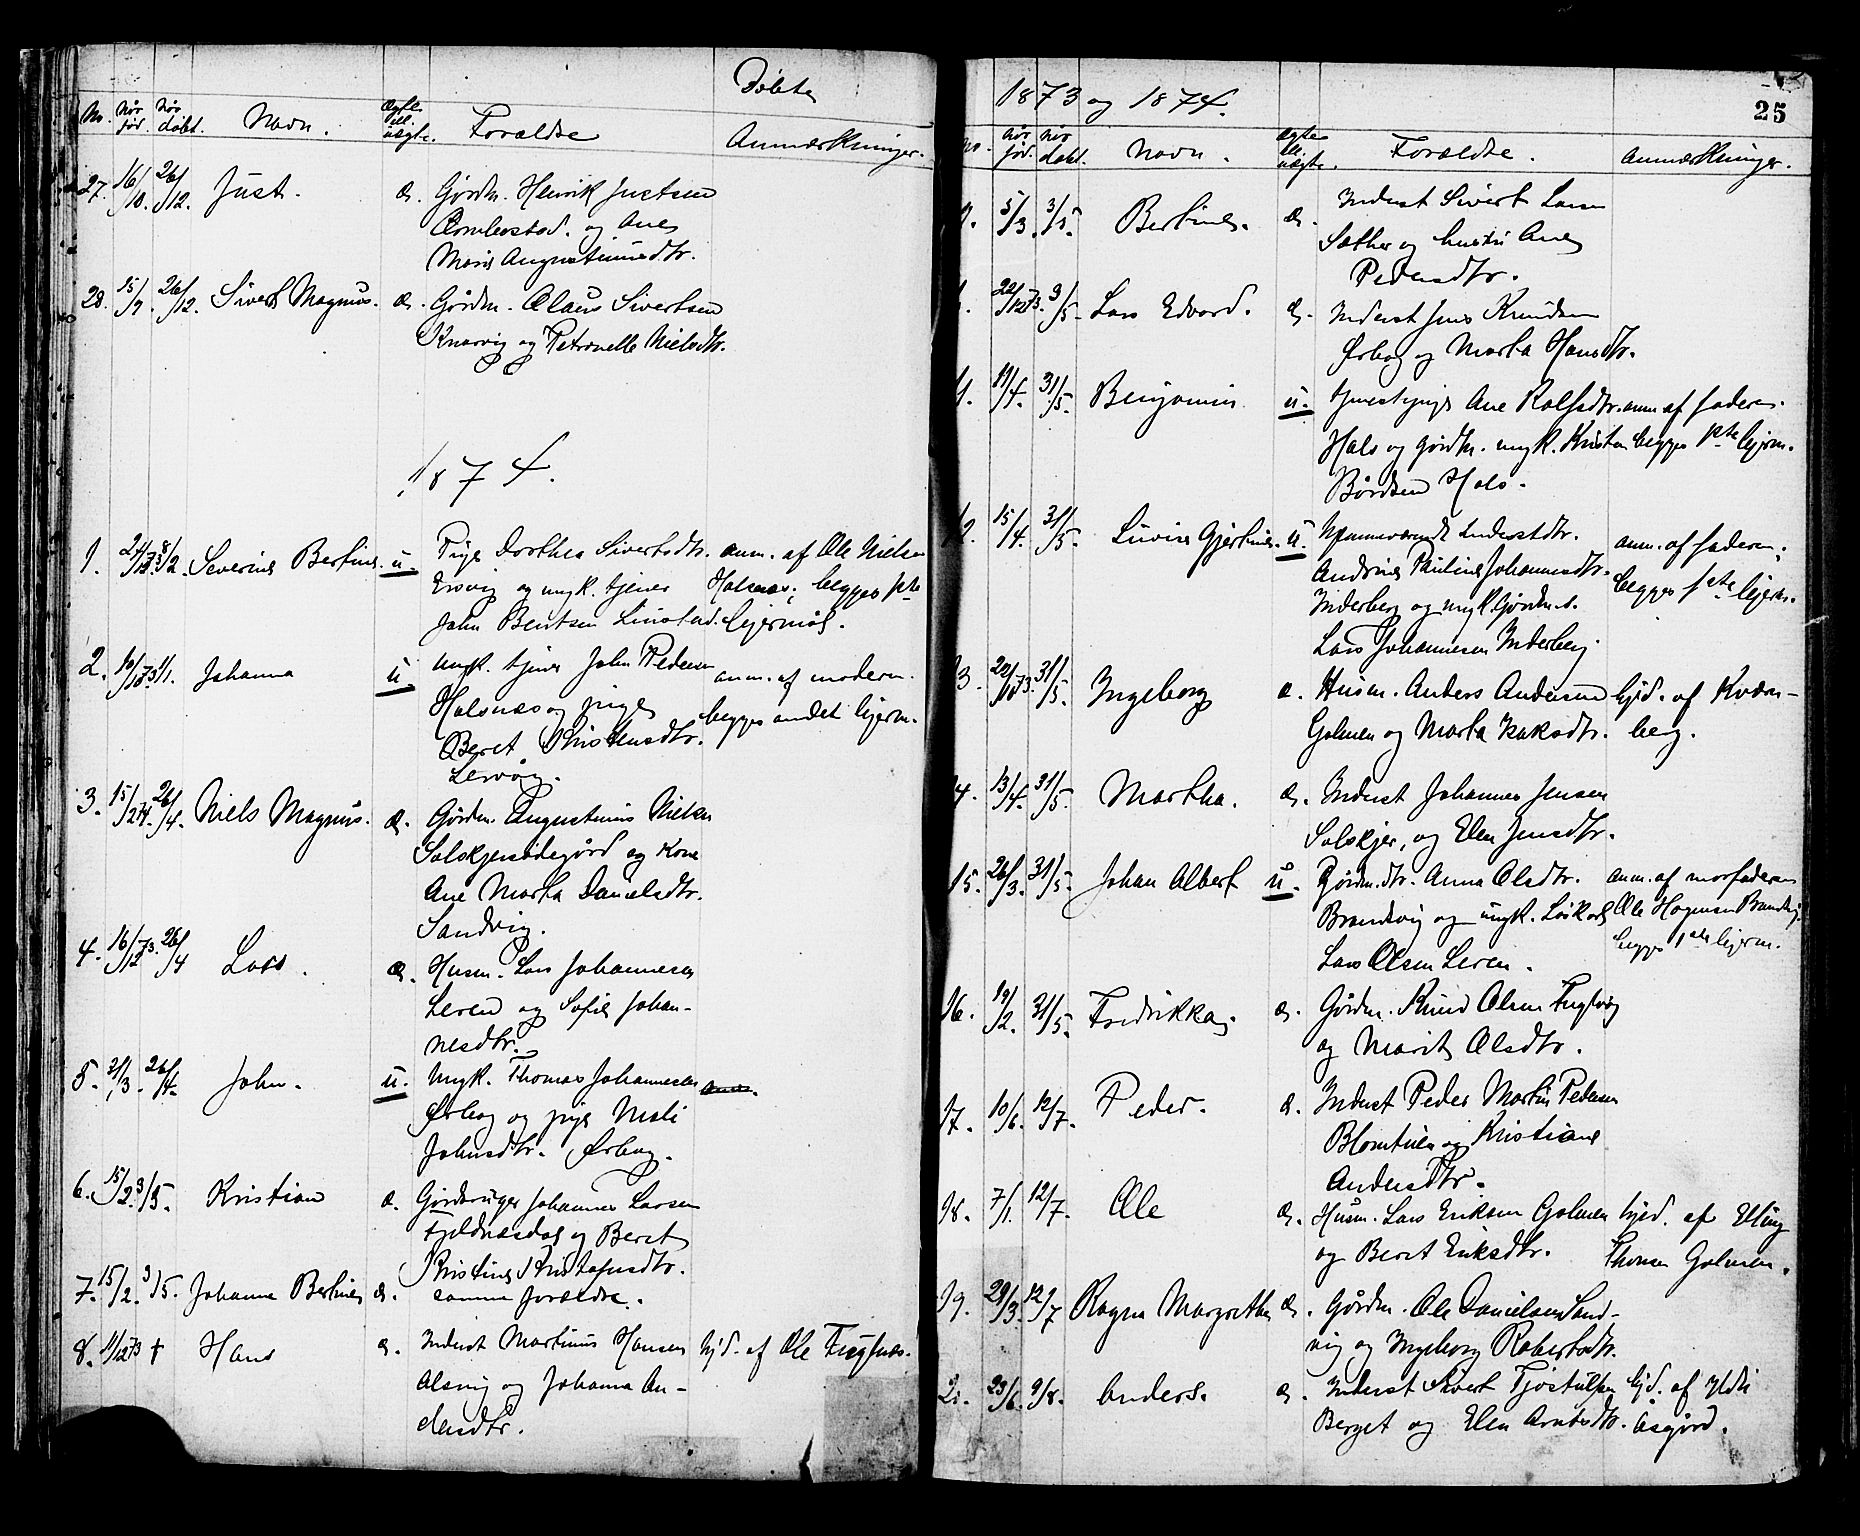 Døbte
No. Når fød. Når døbt. Navn. Ægte ell. uægte. Forældre Anmærkninger.
27. 16/10. 26/12. Just. æ. Gårdm. Henrik Justsen
og Ane
Marie Augustinusdtr.
28. 15/9. 26/12. Sivert Magnus. æ. Gårdm. Olaus Sivertsen
Knarvig og Petronelle Nielsdtr.
1874.
1. 27/12 73. 8/2. Severine Bertine. u. Pige Dorthea Sivertsdtr. anm. af Ole Nielsen
Ersvig og ungk. tjener Halsnæs; begges 1ste
John Bentsen Linstad. lejermål.
2. 10/10 73. 1/1. Johanna u. Ungk. tjener John Pedersen anm. af moderen.
Halsnæs og pige begges andet lejerm.
Beret Kristensdtr.
Lervåg.
3. 15/2 74. 26/4. Niels Magnus. æ. Gårdm. Augustinus Nielsen
Solskjersødegård og Kone
Ane Marta Danielsdtr.
Sandvig.
4. 16/12 73. 26/4 Lars. æ. Husm. Lars Johannesen
Leren og Sofie Johan-
nesdtr.
5. 21/3. 26/4. John. u. Ungk. Thomas Johannesen
Ørbog og pige Mali
Johnsdtr. Ørbog.
6. 15/2. 3/5. Kristian æ. Gårdbruger Johannes Larsen
og Beret
Kristine Kristofersdtr.
7. 15/2. 3/5. Johanna Bertine æ. samme forældre.
8. 11/12 73 † Hans æ. Inderst Martinus Hansen hjd. af Ole Fugsnæs.
Alsvig og Johanna An-
dersdtr.
1873 og 1874.
25
No. Når fød. Når døbt. Navn. Ægte ell. uægte. Forældre. Anmærkninger.
9. 5/3. 3/5. Bertine. æ. Inderst Sivert Larsen
Sæther og hustru Ane
Pedersdtr.
22/12 73. 3/5. Lars Edvard. æ. Inderst Jens Knudsen
Ørbog og Marta Hansdtr.
11. 19/4. 31/5. Benjamin u. tjenestepige Ane Rolfsdtr. anm. af faderen.
Hals og gårdm. ungk. Kristen begges 1ste lejerm.
Bårdsen Hals.
12. 15/4. 31/5. Lovise Gjertine. u. hjemmeværende Inderstdtr. anm. af faderen;
Andrine Pauline Johannesdtr. begges 1ste lejerm.
Inderberg og ungk. Gårdm.s.
Lars Johannesen Inderberg.
13. 22/11 73. 31/5. Ingeborg æ. Husm. Anders Andersen hjd. af Kvern-
Golmen og Marta Isaksdtr. berg.
14. 13/4. 31/5. Martha. æ. Inderst Johannes Jensen
Solskjer, og Elen Jensdtr.
15. 26/3. 31/5. Johan Albert u. Gårdm.dtr. Anna Olsdtr. anm. af morfaderen
Brandsvig og ungk. Løskarl Ole Hagensen Brandsvig.
Lars Olsen Leren. begges 1ste lejerm.
16. 19/2. 31/5. Fredrikka. æ. Gårdm. Knud Olsen Fuglvåg
og Marit Olsdtr.
17. 10/6. 12/7. Peder. æ. Inderst Peder Martin Pedersen
og Kristiane
Andersdtr.
18. 7/1. 12/7. Ole æ. Husm. Lars Eriksen Golmen hjed. af Elling
og Beret Eriksdtr. Thomsen Golmen.
19. 29/3. 12/7 Ragna Margrethe æ. Gårdm. Ole Danielsen Sand-
vig og Ingeborg Robertsdtr.
20. 23/6. 9/8. Anders. æ. Inderst Sivert Tjostulsen hjd. af
Berget og Elen Arntsdtr. Åsgård.